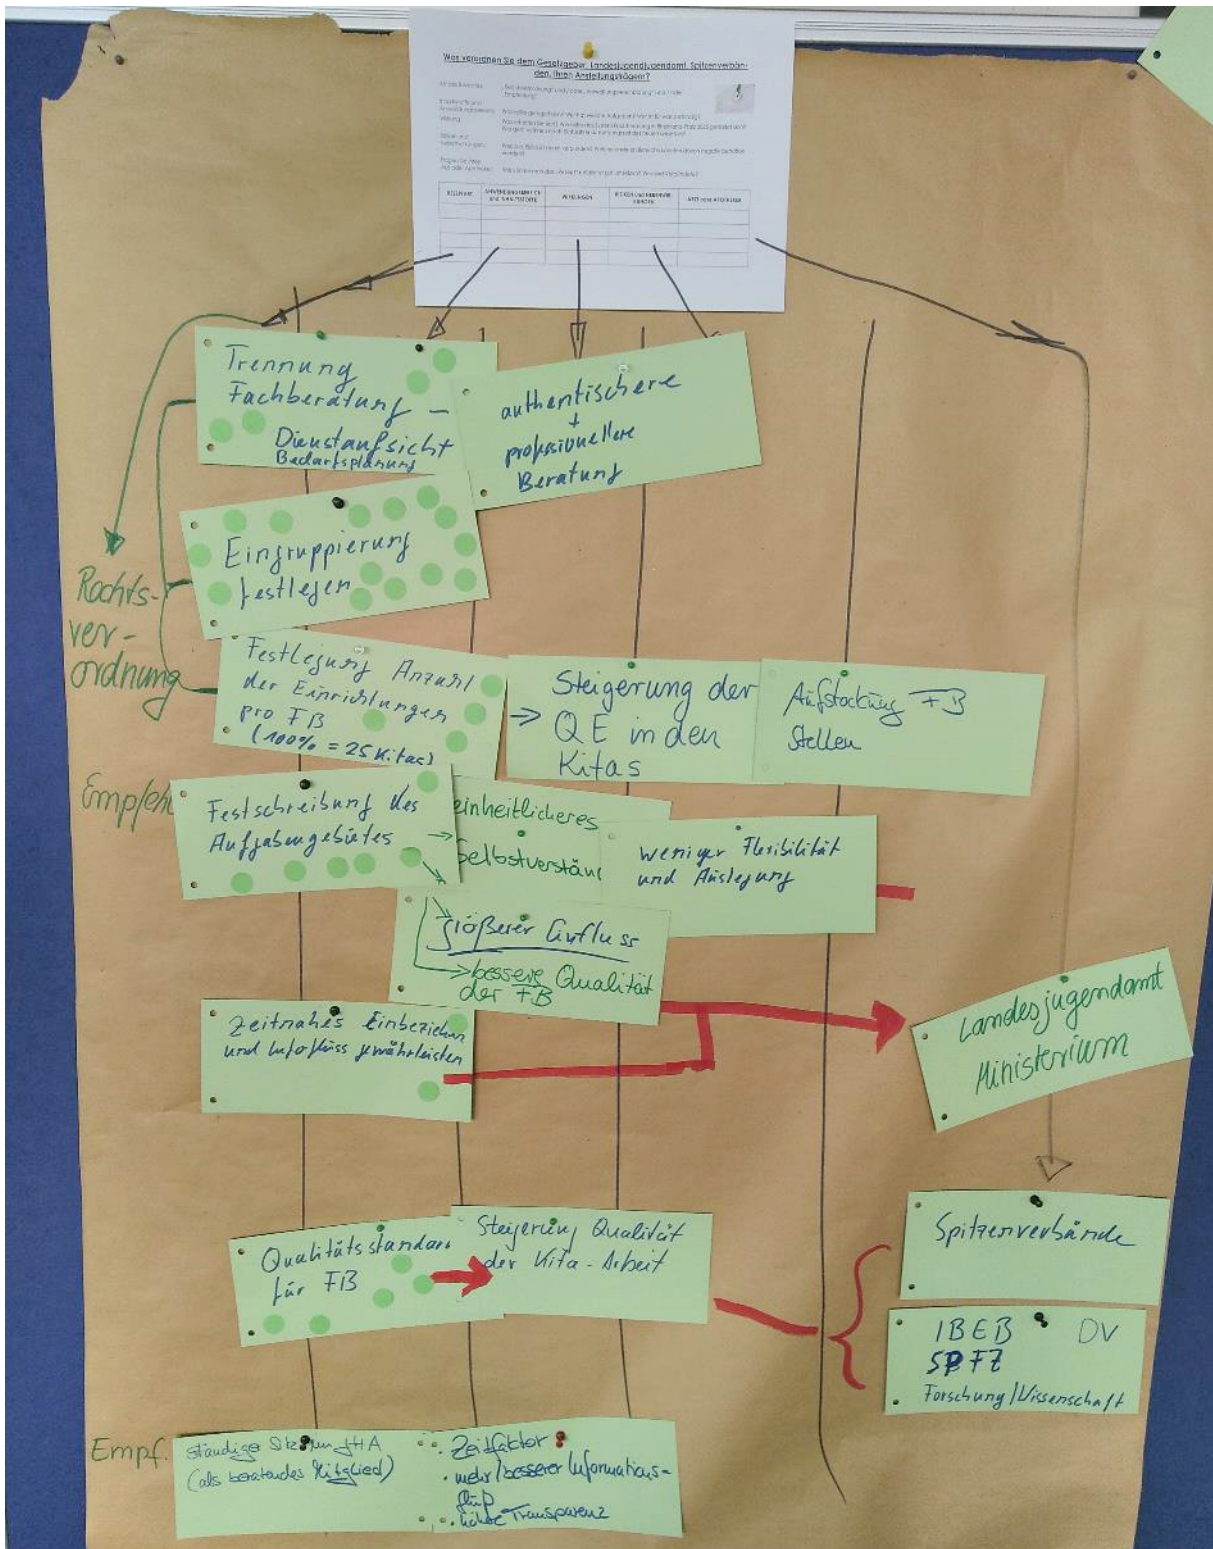 Was verordnen Sie dem Gesetzgeber, Landesjugendjugendamt, Spitzenverbän-
den, Ihren Anstellungsträgern?
WIRKUNGEN
Trennung
Fachberatung –
Dienstaufsicht
Bedarfsplanung
authentischere
+
professionellere
Beratung
Eingruppierung
festlegen
Rechts-
ver-
ordnung
Festlegung Anzahl
der Einrichtungen
pro FB
(100% = 25 Kitas)
Steigerung der
QE in den
Kitas
Aufstockung FB
Stellen
Empfeh
Festschreibung des
Aufgabengebietes
einheitlicheres
Selbstverstän
weniger Flexibilität
und Auslegung
größerer Einfluss
bessere Qualität
der FB
Zeitnahes Einbeziehen
und Infofluss gewährleisten
Landesjugendamt
Ministerium
Qualitätsstandar
für FB
Steigerung Qualität
der Kita-Arbeit
Spitzenverbände
IBEB DV
SPFZ
Forschung/Wissenschaft
Empf.
ständiger Sitz im JHA
(als beratendes Mitglied)
· Zeitfaktor
· mehr/besserer Informations-
fluß
· höhere Transparenz